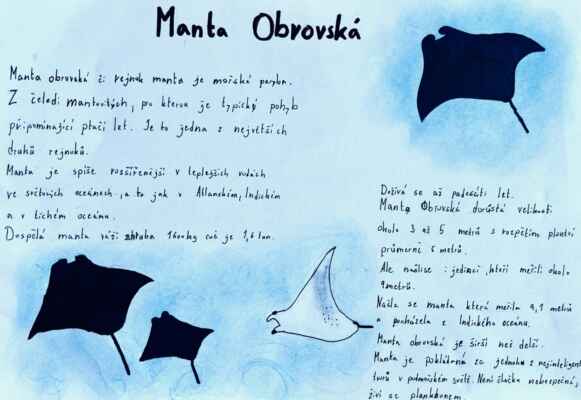 Manta Obrovská
Manta obrovská či rejnok manta je mořská paryba.
Z čeledi mantovitých, pro kterou je typický pohyb
připomínající ptačí let. Je to jedna z největších
druhů rejnoků.
Manta je spíše rozšířenější v teplejších vodách
ve světových oceánech, a to jak v Atlanském, Indickém
a v tichém oceánu.
Dospělá manta váží zhruba 1600kg což je 1,6 tun.
Dožívá se až padesáti let.
Manta Obrovská dorůstá velikosti
okolo 3 až 5 metrů s rozpětím ploutví
průměrně 6 metrů.
Ale našli se i jedinci, kteří měřili okolo
9 metrů.
Našla se manta která měřila 9,1 metrů
a pocházela z Indického oceánu.
Manta obrovská je širší než delší.
Manta je pokládána za jednoho z nejinteligent
tvorů v podmořském světě. Není člověku nebezpečná
živí se planktonem.